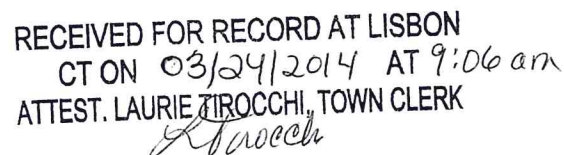 RECEIVED FOR RECORD AT LISBON
CT ON 03/24/2014 AT 9:06 am
ATTEST. LAURIE TIROCCHI, TOWN CLERK
LTirocchi